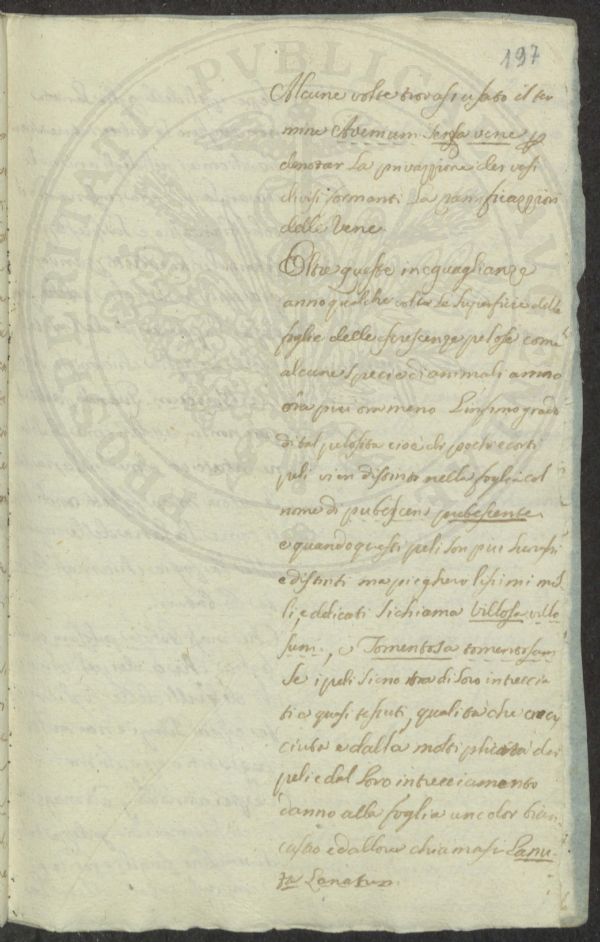 197
Alcune volte trovasi usato il ter
mine Avenium senza vene p
denotar la privazzione dei vasi
divisi formanti la ramificazzion
delle Vene
Oltre queste inequaglianze
anno qualche volta le superficie delle
foglie delle escrescenze pelose come
alcune specie di animali anno
ora piu ora meno L'infimo grado
di tal pelosita cioè di pochi e corti
peli vien distinto nella foglia col
nome di pubescens pubescente
e quando questi peli son piu lunghi
e distinti ma pieghevolissimi mol
li, e dilicati si chiama Villosa villo
sum, e Tomentosa tomentosum
Se i peli sieno tra di loro intreccia
ti e quasi tessuti, qualita che accre
ciuta e dalla moltiplicita dei
peli e dal loro intrecciamento
danno alla foglia un color bian
castro ed allora chiamasi Lanu
ta Lanatum